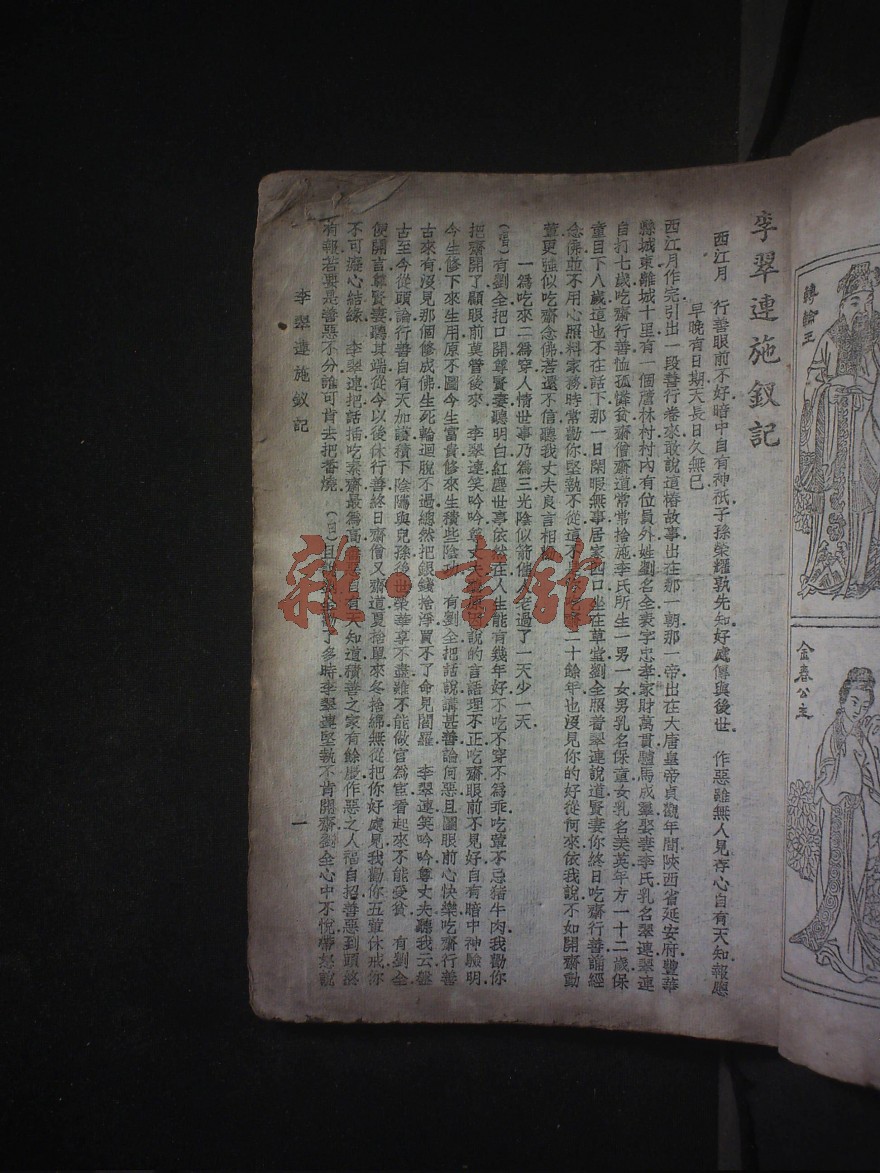 轉輪王
金春公主
李翠連施釵記
西江月　行善眼前不好暗中自有神祇子孫榮耀孰先知好處傳與後世　作惡雖無人見存心自有天知報應
早晚有日期天長日久無已
西江月作完引出一段善行卷來敢說這樁故事出在那一朝那一帝出在大唐皇帝貞觀年間陝西省延安府豐華
縣城東離城十里有一個蘆林村村內有位員外姓劉名全表字忠孝家財萬貫騾馬成羣娶妻李氏乳名翠連翠連
自打七歲吃齋行善恤孤憐貧齋僧齋道常常捨施李氏所生一男一女男乳名保童女乳名美英年方一十二歲保
童目下八歲這也不在話下那一日閑暇無事居家四口坐在草堂劉全照着翠連說道賢妻你終日吃齋行善誦經
念佛並不用心照料家務時常勸你堅執不從這不十餘年也沒見你的好從何來依我說不如開齋動
葷更強似吃齋念佛若還不信聽我丈夫良言相
一爲吃來二爲穿人情世事乃爲三光陰似箭催人老過了一天少一天
有劉全把口開尊賢妻聽明白紅塵世事依然在人生能有幾年好不吃不穿不爲乖吃葷不忌猪牛肉我勸你
把齋開了顧眼前莫管後來　李翠連笑吟吟尊丈夫說的言語理不正吃齋眼前不見好自有暗中神驗明
今生修下來生用原不圖今生富貴修來生積些陰功　有劉全把話說講甚善論何惡且圖眼前心快樂吃齋行善
古來有沒見那個修成佛生死輪迴脫不過總然把銀錢捨淨買不了命見閻羅　李翠連笑吟吟尊丈夫聽我云盤
古至今從頭論行善自有天加護積下陰隲與兒孫後世榮華享不盡雖不能做官爲宦看起來不能受貧　有劉全
便開言尊賢妻聽其端從今以後休行善終日齋僧又齋道夏捨單來冬捨綿無從把你好處見我勸你五葷休戒你
不可癡心結緣　李翠連把話插吃素齋最爲高善惡自有天知道積善之家有餘慶作惡之人禍自招善惡到頭終
有報若要是善惡不分誰可肯去把香燒　且劉全勸了多時李翠連堅執不肯開齋劉全心中不悅帶怒說
李翠連施釵記
一
雜·書舘